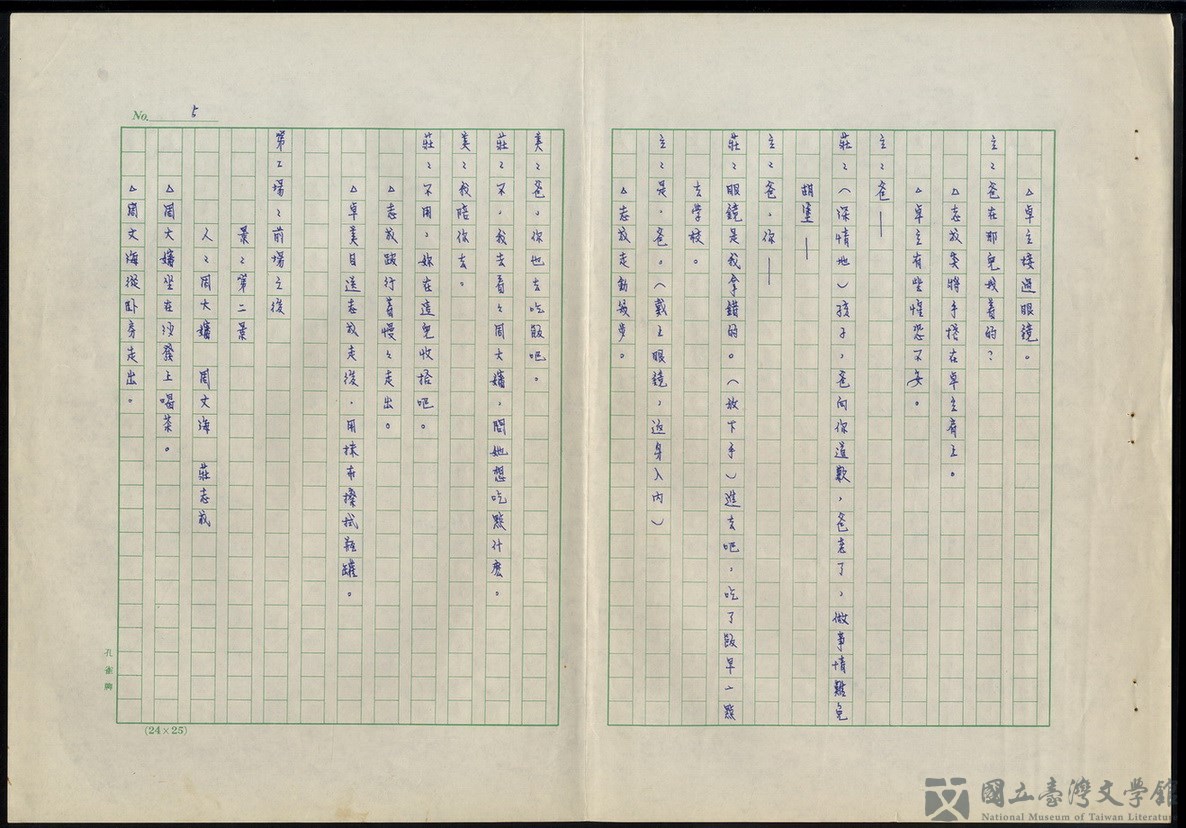 △卓立接過眼鏡。
立：爸在那兒找着的？
△志放突將手搭在卓立肩上。
△卓立有些惶恐不安。
立：爸——
莊：（深情地）孩子，爸向你道歉，爸老了，做事情難免
胡塗——
立：爸，你——
莊：眼鏡是我拿錯的。（放下手）進去吧，吃了飯早一點
去學校。
立：是，爸。（戴上眼鏡，返身入內）
△志放走動幾步。
No. 5
美：爸，你也去吃飯吧。
莊：不，我去看看周大嬸，問她想吃點什麼。
美：我陪你去。
莊：不用，妳在這兒收拾吧。
△志放跛行着慢慢走出。
△卓美目送志放走後，用抹布擦拭瓶罐。
第2場：前場之後
景：第二景
人：周大嬸 周文海 莊志放
△周大嬸坐在沙發上喝茶。
△周文海從卧房走出。
孔雀牌
(24×25)
國立臺灣文學館
National Museum of Taiwan Literature